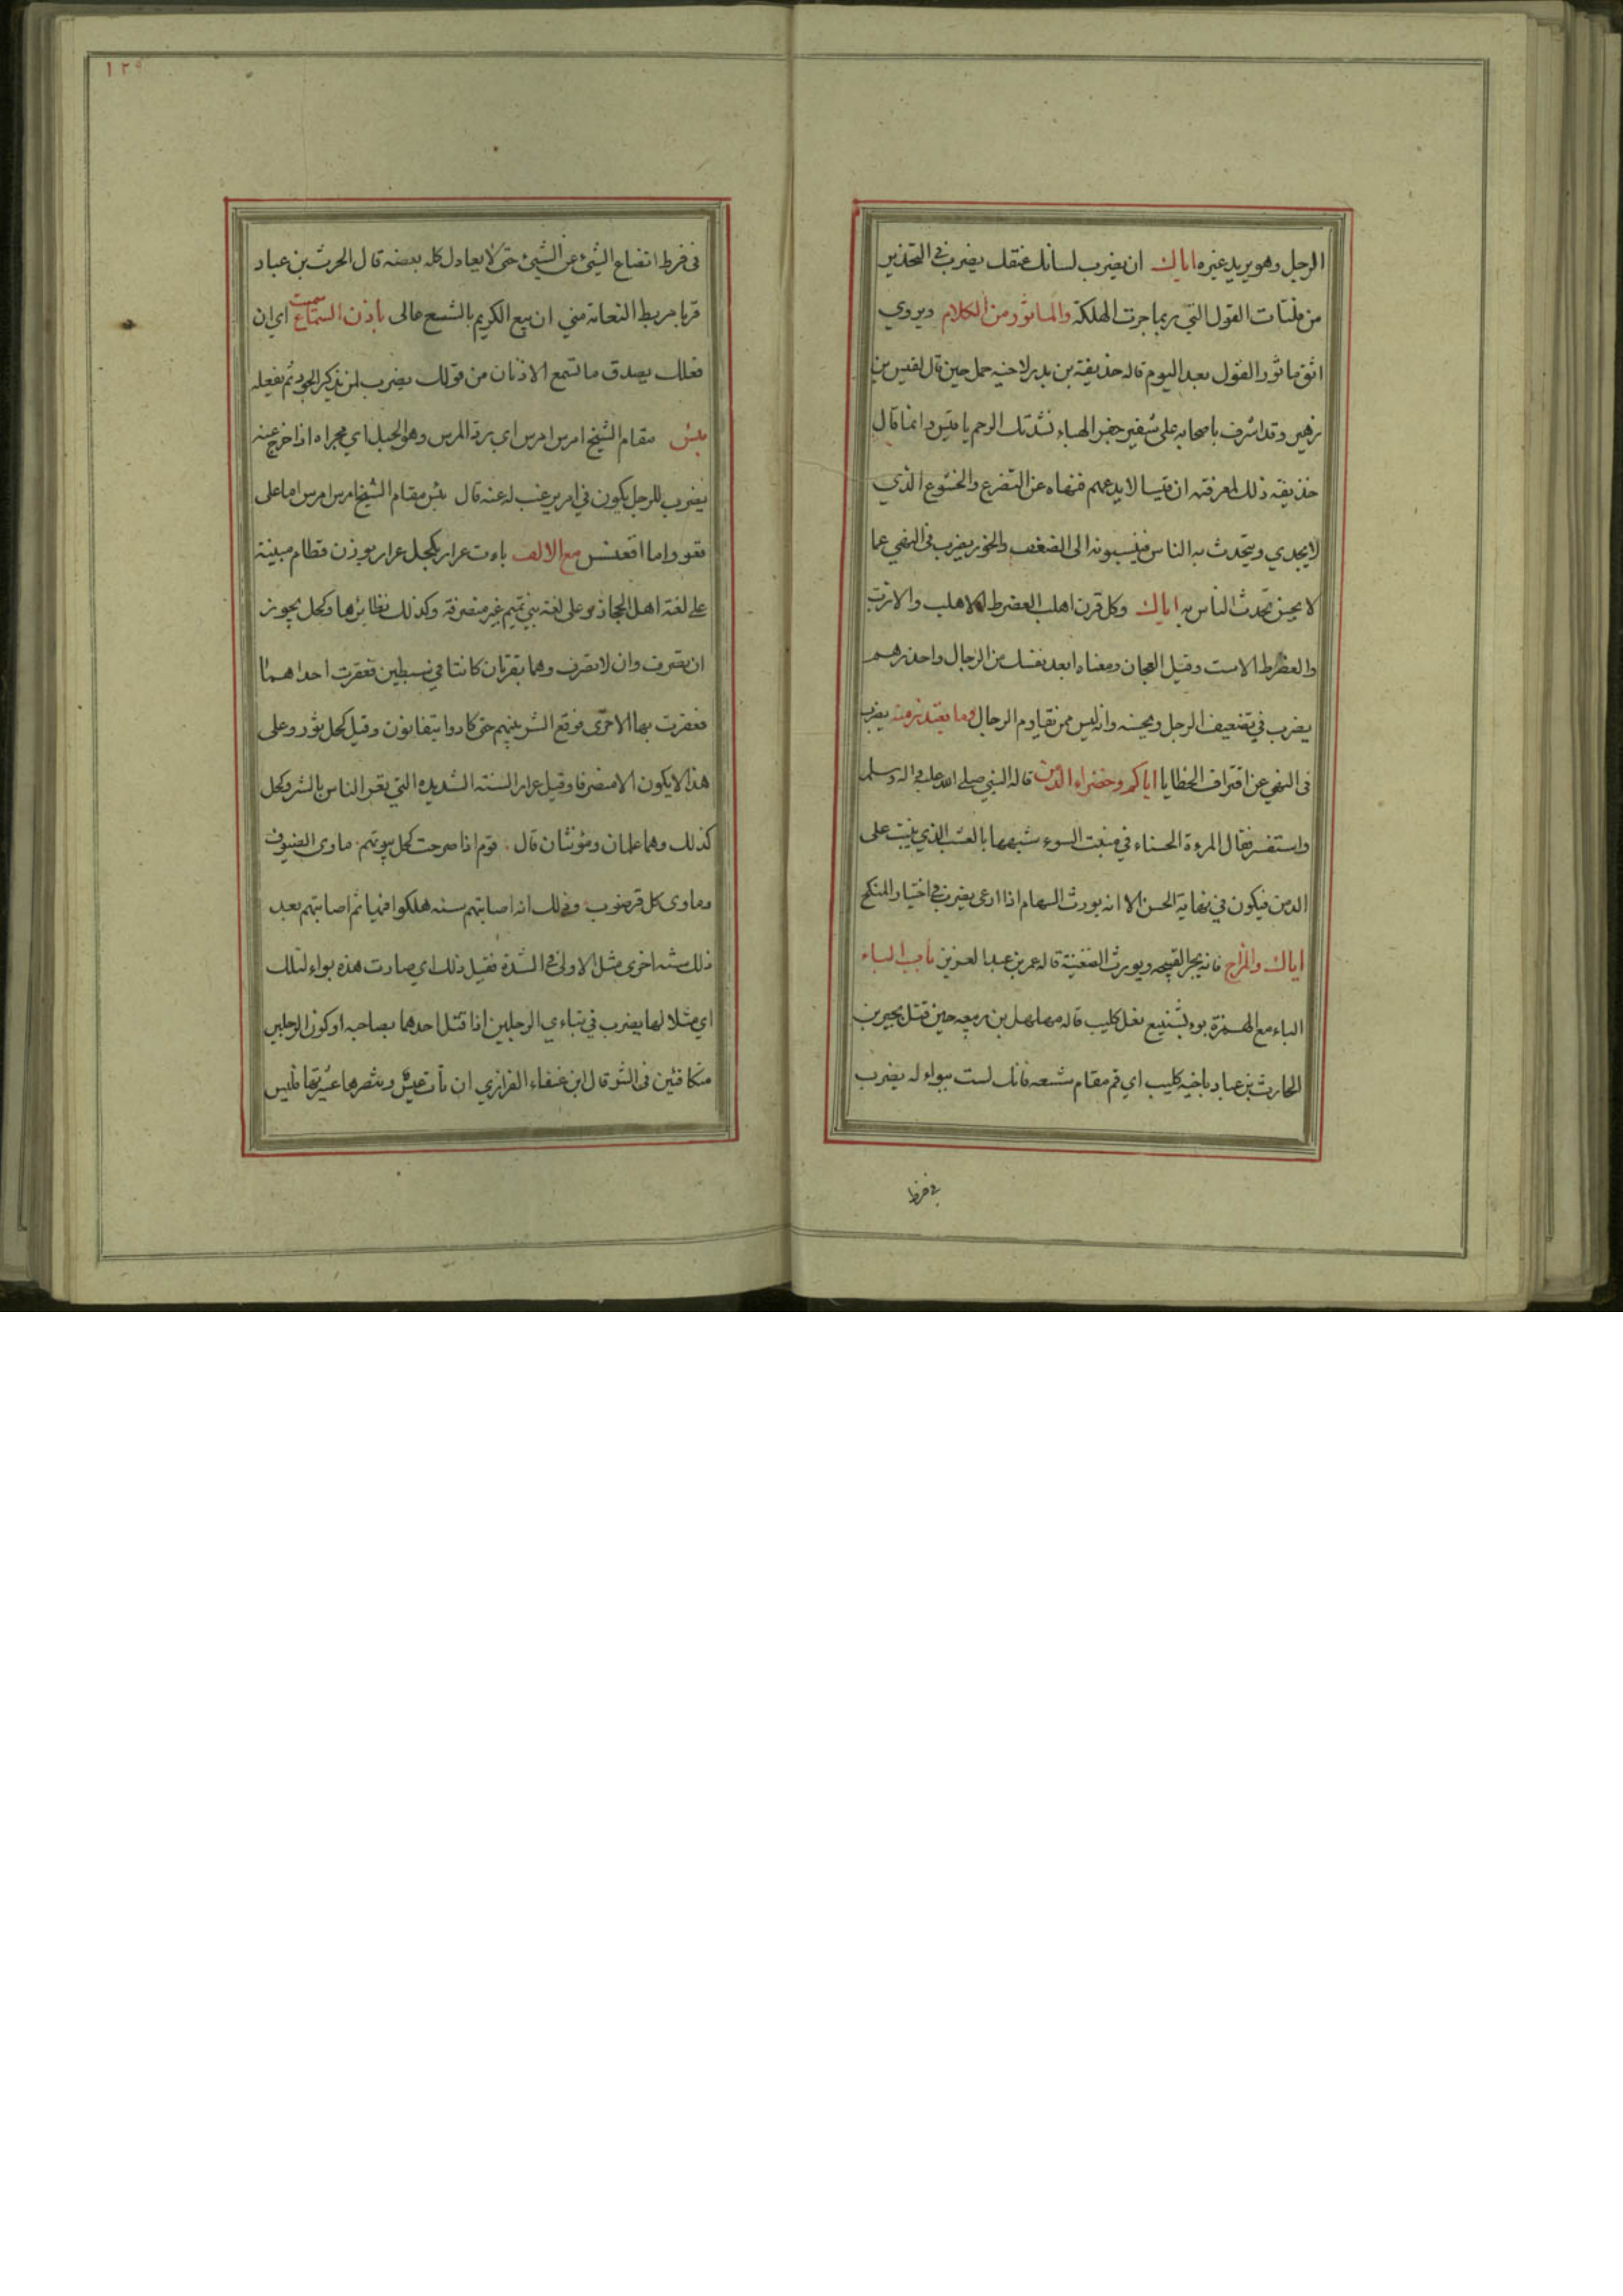 الرجل وهو يريد غيره اياك ان يضرب لسانك عنقك يضرب في التحذير
من فلتات القول التي ربما جرت الهلكة والماثور من الكلام ويروي
اتق ماثور القول بعد اليوم قاله حذيفة بن بدر لاخيه حمل حين قال لقيس بن
زهير وقد اشرف باصحابه على شفير جفر الهباء نشدتك الرحم يا قيس وانما قال
حذيفه ذلك لمعرفته ان قيسا لا يدعهم فنهاه عن التضرع والخشوع الذي
لا يجدي ويتحدث به الناس فينسبونه الى الضعف والخور يضرب في النهي عما
لا يحسن تحدث الناس به اياك وكل قرن اهلب العضرط الاهلب والازب
والعضرط الاست وقيل العجان ومعناه ابعد نفسك من الرجال واحذرهم
يضرب في تضعيف الرجل وانه ليس ممن يقاوم الرجال وما يعتذر منه يضرب
في النهي عن اقتراف الخطايا اياكم وخضراء الدمن قاله النبي صلى الله عليه واله وسلم
واستفسر فقال المرءة الحسناء في منبت السوء شبهها بالعشب الذي ينبت على
الدمن فيكون في نهاية الحسن الا انه يورث السهام اذا ارعى يضرب في اختيار المنكح
اياك والمزاح فانه يجر القبيحه ويورث الضغينة قاله عمر بن عبد العزيز باب الباء
الباء مع الهمزة بوء بشسع نعل كليب قاله مهلهل بن ربيعه حين قتل بجير بن
الحارث بن عباد باخيه كليب اي قم مقام شسعه فانك لست ببواء له يضرب
في فرط
١٢٥
في فرط اتضاع الشيء عن الشيء حتى لا يعادل كله بعضه قال الحرث بن عباد
قربا مربط النعامة مني ان بيع الكريم بالشسع غالى باذن السماع سميت اي ان
فعلك يصدق ما تسمع الاذنان من قولك يضرب لمن يذكر الجود ثم يفعله
بئس مقام الشيخ امرس امرس اي رد المرس وهو الحبل اي مجراه اذا خرج عنه
يضرب للرجل يكون في امر يرغب له عنه قال بئس مقام الشيخ امرس امرس اما على
قعو واما اقعنسس مع الالف باءت عرار بكحل عرار بوزن قطام مبينة
على لغة اهل الحجاز وعلى لغة بني تميم غير منصرفة وكذلك نظايرها وكحل يجوز
ان يصرف وان لا يصرف وهما بقرتان كانتا في سبطين فعقرت احداهما
فعقرت بها الاخرى فوقع الشر بينهم حتى كادوا يتفانون وقيل كحل ثور وعلى
هذا لا يكون الا منصرفا وقيل عرار السنة الشديده التي تعر الناس بالشر وكحل
كذلك وهما علمان ومؤنثان قال قوم اذا صرحت كحل بيوتهم ماوى الضيوف
وماوى كل قرضوب وذلك انه اصابتهم سنه هلكوا فيها ثم اصابتهم بعد
ذلك سنه اخرى مثل الاولى في الشدة فقيل ذلك اي صارت هذه بواء لتلك
اي مثلا لها يضرب في تباءي الرجلين اذا قتل احدهما بصاحبه او كون الرجلين
متكافئين في الشر قال ابن عنقاء الفزازي ان تات عبس وينصرها عشيرتها فليس